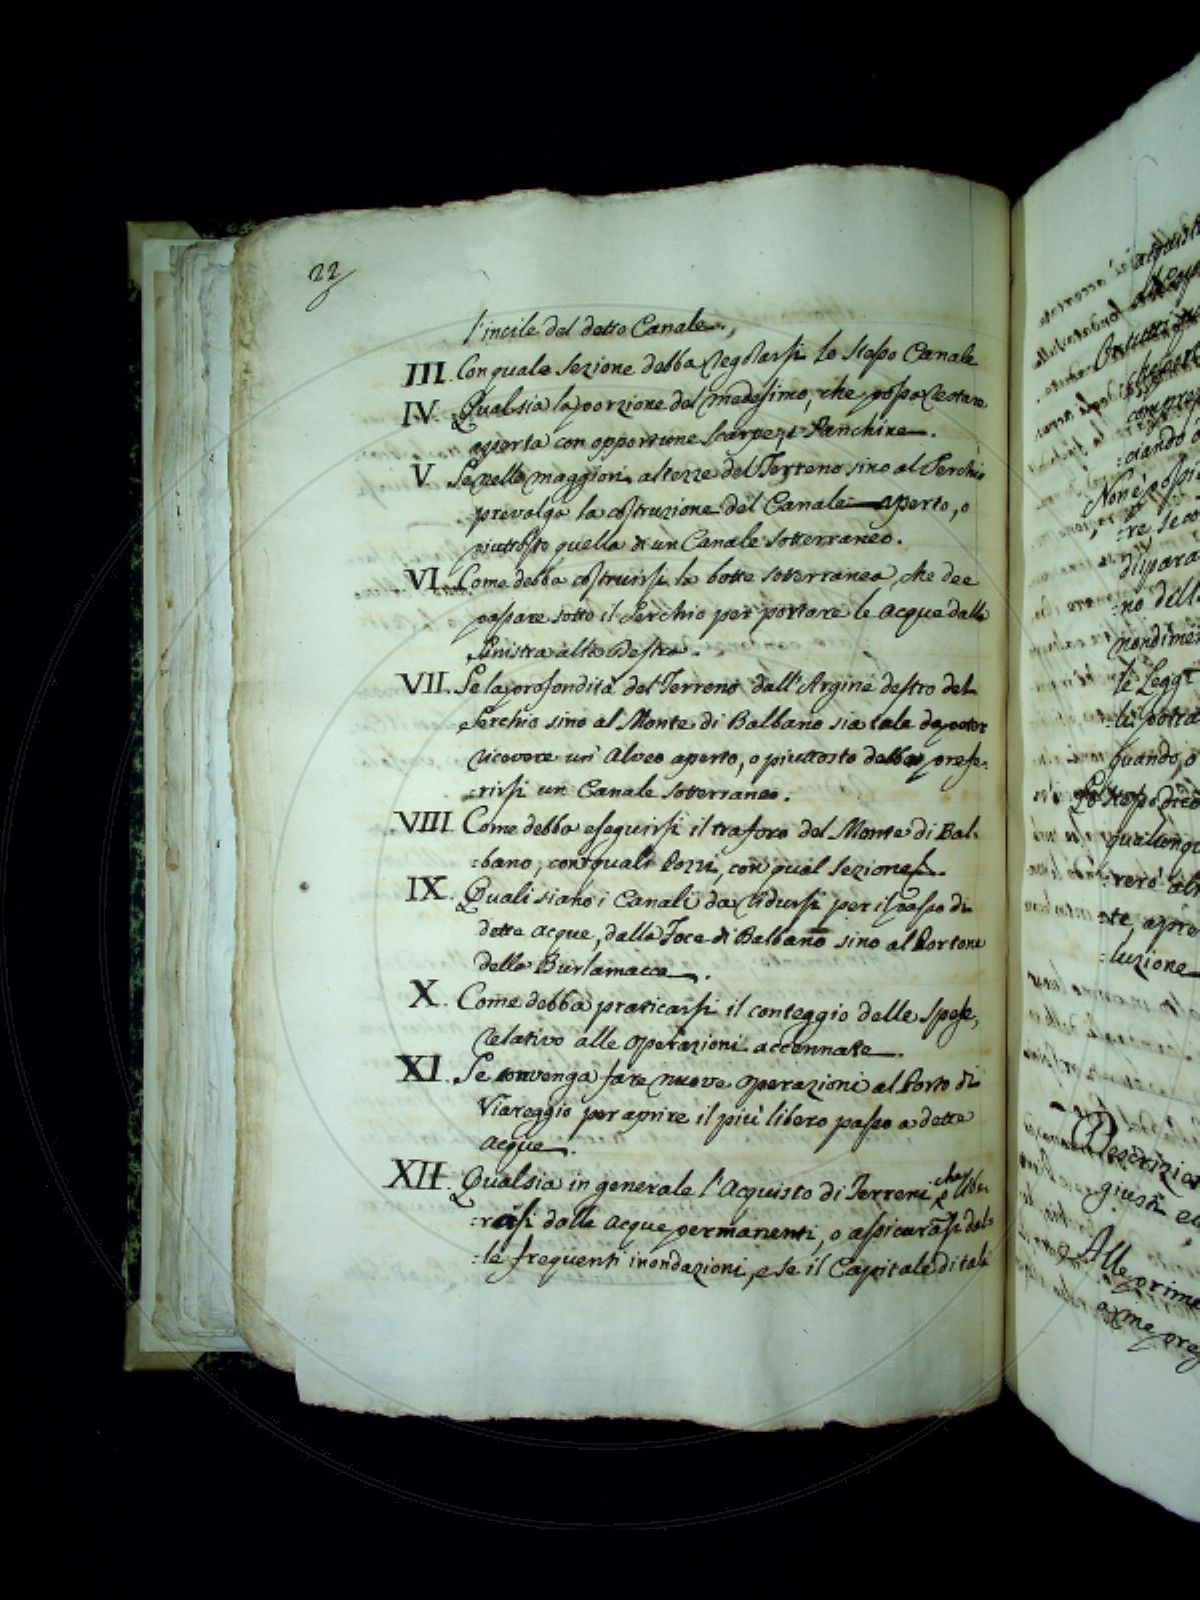 22
l'incile del detto Canale.
III. Con quale sezione debba regolarsi lo stesso Canale
IV. Qual sia la porzione del medesimo, che possa restare
aperta con opportune scarpe, e Panchine.
V. Se nelle maggiori altezze del Terreno sino al Serchio
prevalga la costruzione del Canale aperto, o
piuttosto quella di un Canale sotterraneo.
VI. Come debba costruirsi la botte sotterranea, che dee
passare sotto il Serchio per portare le acque dalla
sinistra alla Destra.
VII. Se la profondità del Terreno dall'Argine destro del
Serchio sino al Monte di Balbano sia tale da poter
ricevere un' Alveo aperto, o piuttosto debba prefe-
:rirsi un Canale sotterraneo.
VIII. Come debba eseguirsi il traforo del Monte di Bal-
:bano, con quali Pozzi, con qual sezione.
IX. Quali siano i Canali da ridursi per il passo di
dette acque, dalla Foce di Balbano sino al Portone
della Burlamacca.
X. Come debba praticarsi il conteggio delle spese,
relativo alle operazioni accennate.
XI. Se convenga fare nuove operazioni al Porto di
Viareggio per aprire il più libero passo a dette
acque.
XII. Qual sia in generale l'Acquisto di Terreni che libe-
:rasi dalle acque permanenti, o assicurasi dal-
:le frequenti inondazioni, e se il Capitale di tali
acquist
compres
:ciando
Non è
:re se co
:no dell
nondime
le Legg
li potra
quando, o
Lo stesso dico
qualunqu
:rerò al
:te, apre
:luzione
Descrizion
giusti
Alle prime